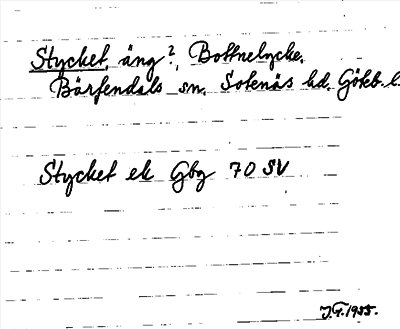 Stycket, äng?, Bottnelycke,
Bärfendals sn, Sotenäs hd, Göteb. l.
Stycket ek Gbg 70 SV
J.G. 1955.